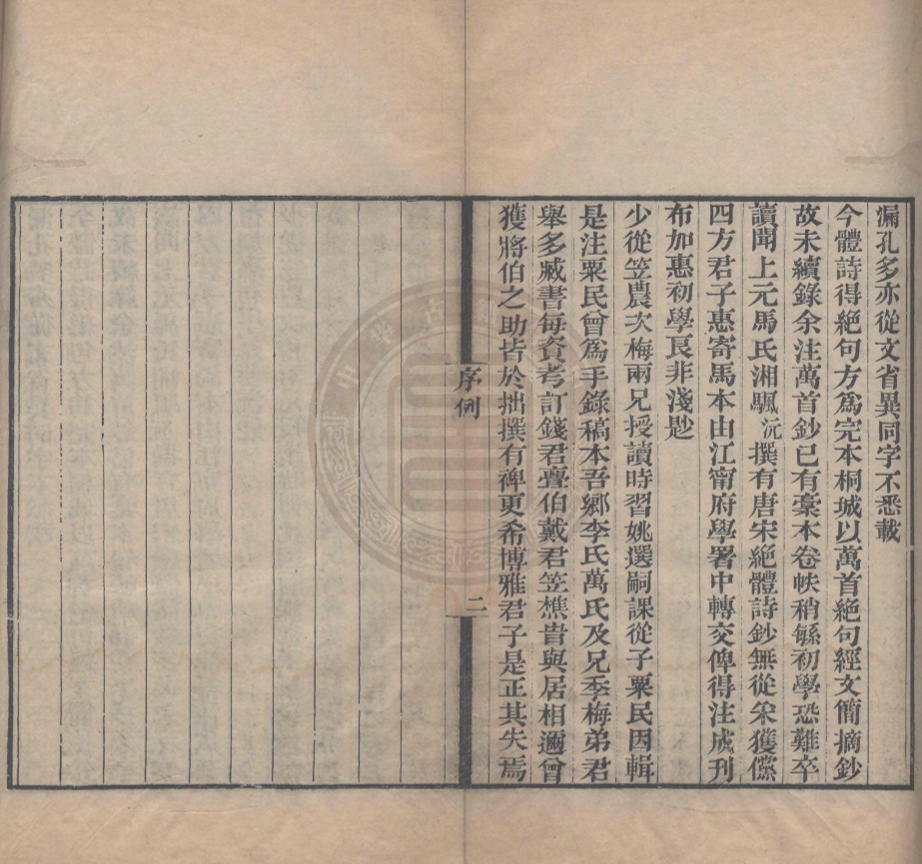 漏孔多亦從文省異同字不悉載
今體詩得絕句方爲完本桐城以萬首絕句經文簡摘鈔
故未續錄余注萬首鈔已有稾本卷帙稍緐初學恐難卒
讀聞上元馬氏湘颿沅撰有唐宋絕體詩鈔無從采獲儻
四方君子惠寄馬本由江甯府學署中轉交俾得注成刊
布加惠初學良非淺尟
少從笠農次梅兩兄授讀時習姚選嗣課從子粟民因輯
是注粟民曾爲手錄稿本吾鄉李氏萬氏及兄季梅弟君
舉多臧書每資考訂錢君㐮伯戴君笠樵昔與居相邇曾
獲將伯之助皆於拙撰有裨更希博雅君子是正其失焉
序例
二